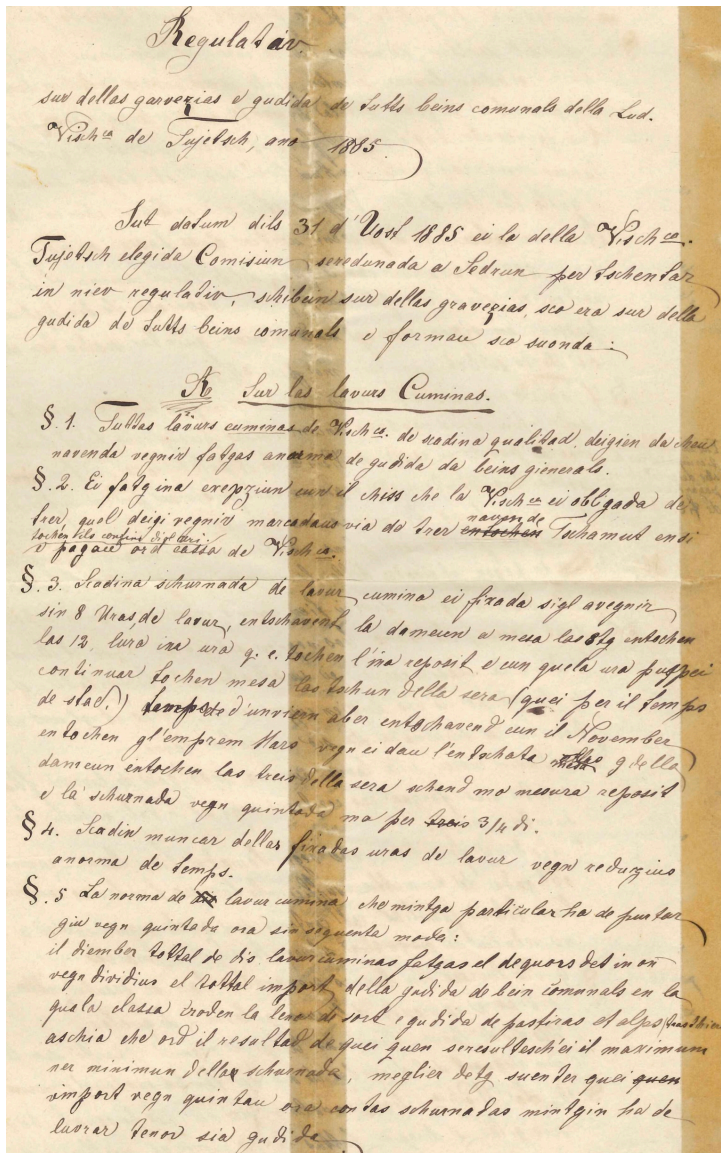 Regulativ.
sur dellas garvezias e gudida de tutts beins comunals della Lud.
Visch^ca de Tujetsch, ano 1885
Sut datum dils 31 d'Uost 1885 ei la della Visch^ca.
Tujetsch elegida Comisiun seredunada a Sedrun per tschentar
in niev regulativ, schibein sur dellas gravezias, sco era sur della
gudida de tutts beins comunals e formau sco suonda:
A Sur las lavurs Cuminas.
§. 1. Tuttas lavurs cuminas de Visch^ca. de scadina qualitad, deigien da
navenda vegnir fatgas anorma de gudida da beins generals.
§. 2. Ei fatg ina excepziun cun il che la Visch^ca ei obligada de
trer, qual deigi vegnir marcadaus via de trer naven de entochen Tschamut ensi
tochen els confins digl
e pagau ord cassa de Visch^ca.
§. 3. Scadina schurnada de lavur cumina ei fixada sigl avegnir
sin 8 Uras, de lavur, entschavent la dameun a mesa las 8tg entochen
las 12, lura ina ura q. e. tochen l'ina reposit e cun quela ura puspei
continuar tochen mesa las tschun della sera (quei per il temps
de stad.) d'unviern aber entschavend cun il November
entochen gl'emprem Mars vegn ei dau l'entschata mesa 9 della
dameun entochen las treis della sera schand mo mesura reposit
e la schurnada vegn quintada mo per treis 3/4 di.
§ 4. Scadin muncar dellas fixadas uras de lavur vegn reduzius
anorma de temps.
§. 5 La norma de lavur cumina che mintga particular ha de purtar
giu vegn quintada ora sin sequenta moda:
il diember tottal de dis lavur cuminas fatgas el dequors det in on
vegn dividius el tottal import della gudida de bein comunals en la
quala classa croden la lenor de sort e gudida de pastiras et alps
aschia che ord il resultad de quei quen seresultesch'ei il maximum
ner minimun della schurnada, meglier detg suenter quei quen
import vegn quintau ora contas schurnadas mintgin ha de
luvrar tenor sia gudida